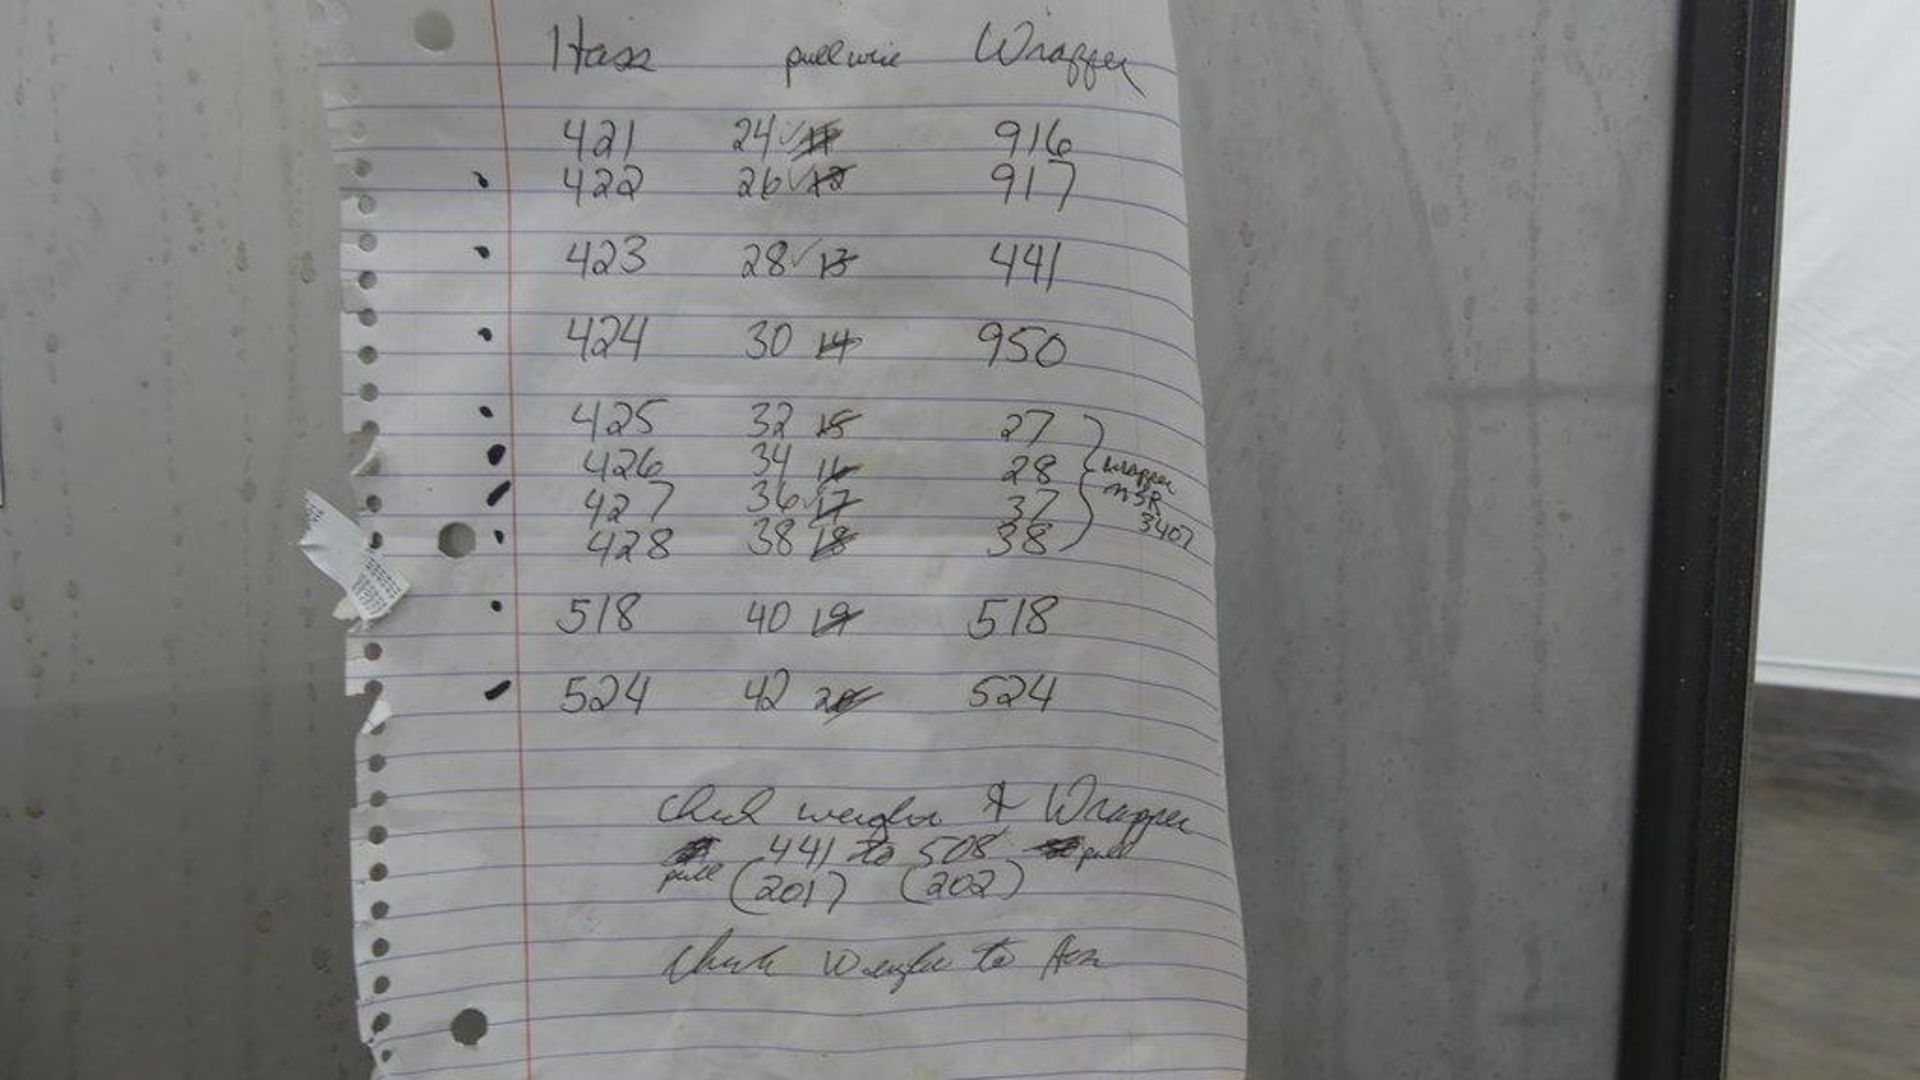 Hass pull wire Wrapper
421 24 ✓ 11 916
422 26 ✓ 12 917
423 28 ✓ 13 441
424 30 14 950
425 32 15 27
426 34 16 28 wrapper
427 36 ✓ 17 37 MSR
428 38 18 38 3407
518 40 19 518
524 42 20 524
Check weigher & Wrapper
441 to 508 pull
pull (201) (202)
Check Weigher to Hass